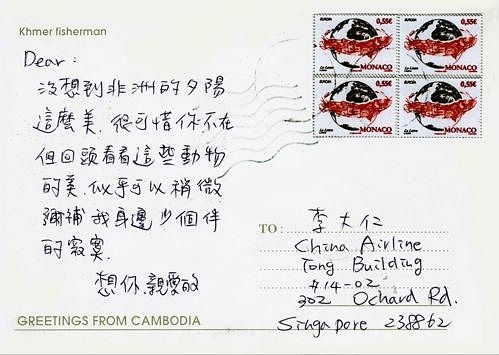 Khmer fisherman
Dear:
沒想到非洲的夕陽
這麼美.很可惜你不在
但回頭看看這些動物
的美.似乎可以稍微
彌補我身邊少個伴
的寂寞.
想你.親愛的
GREETINGS FROM CAMBODIA
EUROPA 0,55€
MONACO
EUROPA 0,55€
MONACO
EUROPA 0,55€
MONACO
EUROPA 0,55€
MONACO
TO:
李大仁
China Airline
Tong Building
#14-02
302 Ochard Rd.
Singapore 238862